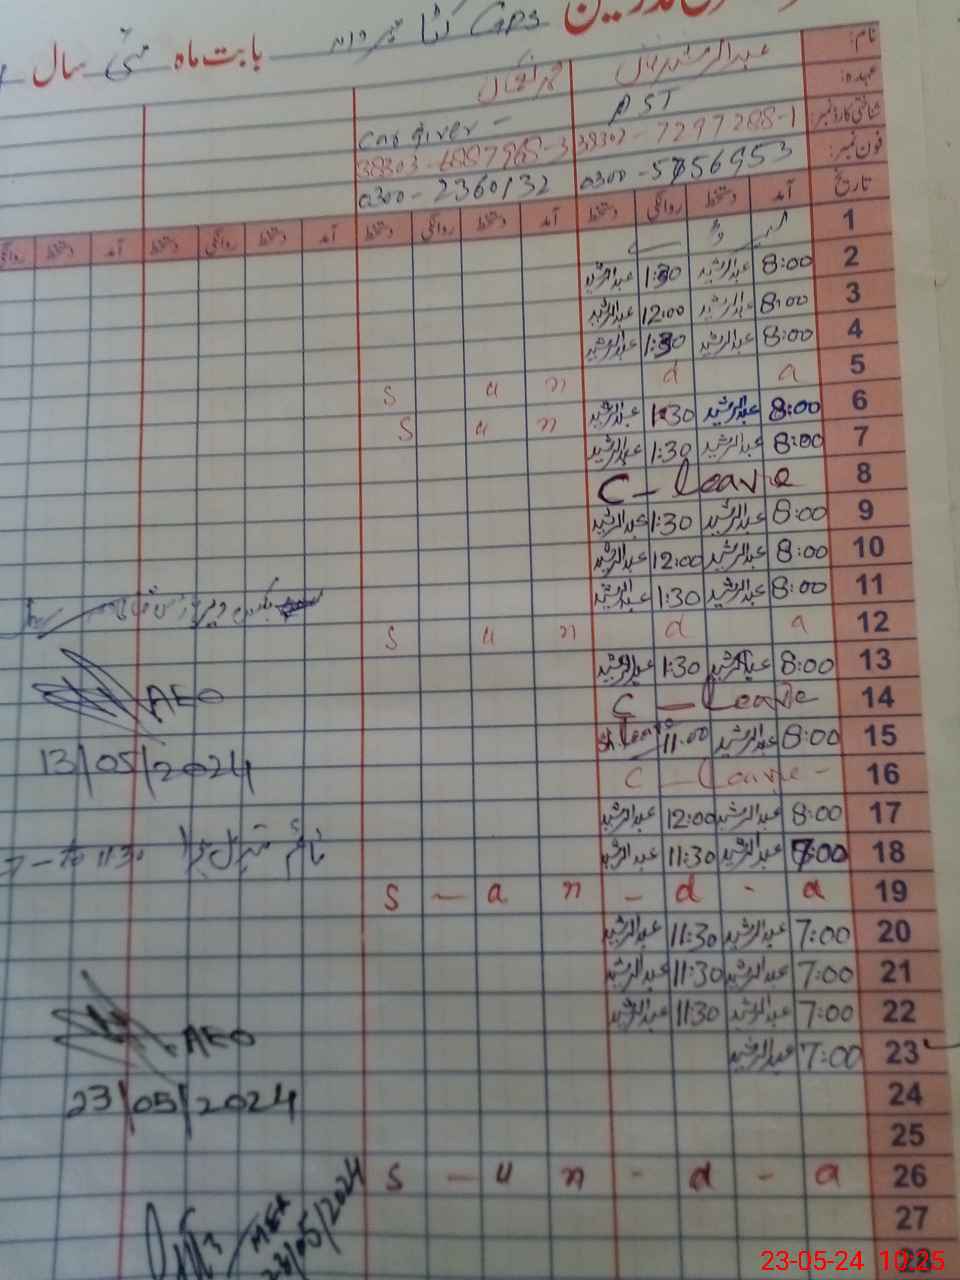 بابت ماہ مئی سال
نام: عبدالرشید
عہدہ: PST Care giver -
شناختی کارڈ نمبر: 38302-7297288-1
فون نمبر: 0300-5756953 0300-2360132
تاریخ آمد دستخط روانگی دستخط آمد دستخط روانگی دستخط آمد دستخط روانگی دستخط آمد دستخط روانگی
1
2 8:00 عبدالرشید 1:30 عبدالرشید
3 8:00 عبدالرشید 12:00 عبدالرشید
4 8:00 عبدالرشید 1:30 عبدالرشید
5 S u n d a
6 8:00 عبدالرشید 1:30 عبدالرشید S u n
7 8:00 عبدالرشید 1:30 عبدالرشید
8 C - leave
9 8:00 عبدالرشید 1:30 عبدالرشید
10 8:00 عبدالرشید 12:00 عبدالرشید
11 8:00 عبدالرشید 1:30 عبدالرشید
12 S u n d a
13 8:00 عبدالرشید 1:30 عبدالرشید
14 C - leave
AEO
15 8:00 عبدالرشید 11:00 Sh.leave
13/05/2024
16 C - leave -
17 8:00 عبدالرشید 12:00 عبدالرشید
18 7:00 عبدالرشید 11:30 عبدالرشید
7 - to 11:30
19 S - u n - d - a
20 7:00 عبدالرشید 11:30 عبدالرشید
21 7:00 عبدالرشید 11:30 عبدالرشید
22 7:00 عبدالرشید 11:30 عبدالرشید
AEO
23 7:00 عبدالرشید
23/05/2024
24
25
26 S - u n - d - a
27
28
MEA
23/05/2024
23-05-24 10:25